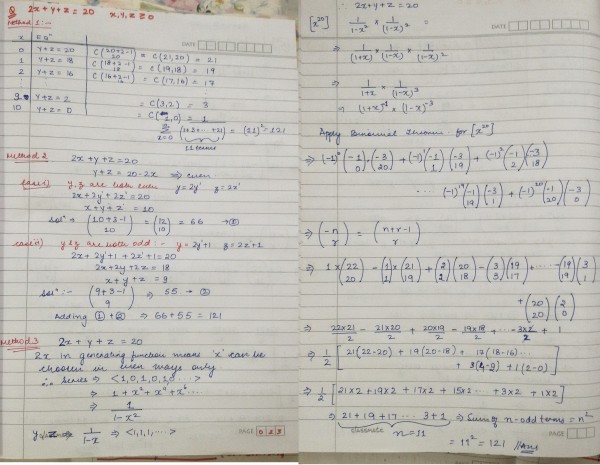 Q 2x+y+z = 20 x,y,z ≥ 0
Method 1:-
DATE
x Eqⁿ
0 y+z = 20 C(20+2-1, 20) = C(21,20) = 21
1 y+z = 18 C(18+2-1, 18) = C(19,18) = 19
2 y+z = 16 C(16+2-1, 16) = C(17,16) = 17
9 y+z = 2 = C(3,2) = 3
10 y+z = 0 = C(1,0) = 1
11 terms = 121
Method 2 2x+y+z = 20
y+z = 20-2x ⇒ even
case i) y,z are both even y=2y' z=2z'
2x+2y'+2z' = 20
x+y'+z' = 10
solⁿ → (10+3-1, 10) = (12, 10) = 66 → ①
case ii) y & z are both odd :- y=2y'+1 z=2z'+1
2x+2y'+1+2z'+1 = 20
2x+2y+2z = 18
x+y+z = 9
solⁿ :- (9+3-1, 9) ⇒ 55 → ②
Adding ① + ② ⇒ 66+55 = 121
Method 3 2x+y+z = 20
2x in generating function means 'x' can be
choosen in even ways only
∴ series → <1,0,1,0,1 ... >
⇒ 1+x²+x⁴+x⁶...
⇒ 1/(1-x²)
1/(1-x) ⇒ <1,1,1,...>
classmate
PAGE 023
∴ 2x+y+z = 20
DATE
[x²⁰] 1/(1-x²) × 1/(1-x)² =
⇒ 1/(1+x) × 1/(1-x) × 1/(1-x)²
⇒ 1/(1+x) × 1/(1-x)³
⇒ (1+x)⁻¹ × (1-x)⁻³
Apply Binomial Theorem for [x²⁰]
⇒ (-1)⁰(-1, 0)(-3, 20) + (-1)¹(-1, 1)(-3, 19) + (-1)²(-1, 2)(-3, 18)
... (-1)¹⁹(-1, 19)(-3, 1) + (-1)²⁰(-1, 20)(-3, 0)
⇒ (-n, r) = (n+r-1, r)
⇒ 1×(22, 20) - (1, 1)(21, 19) + (2, 2)(20, 18) - (3, 3)(19, 17) + ... - (19, 19)(3, 1)
+ (20, 20)(2, 0)
⇒ 22×21/2 - 21×20/2 + 20×19/2 - 19×18/2 + ... - 3×2/2 + 1
⇒ 1/2 [21(22-20) + 19(20-18) + 17(18-16) ...
+ 3(4-2) + 1(2-0)]
⇒ 1/2 [21×2 + 19×2 + 17×2 + 15×2 ... + 3×2 + 1×2]
⇒ 21+19+17 ... 3+1 ⇒ Sum of n-odd terms = n²
classmate n=11 PAGE
= 11² = 121 //Ans